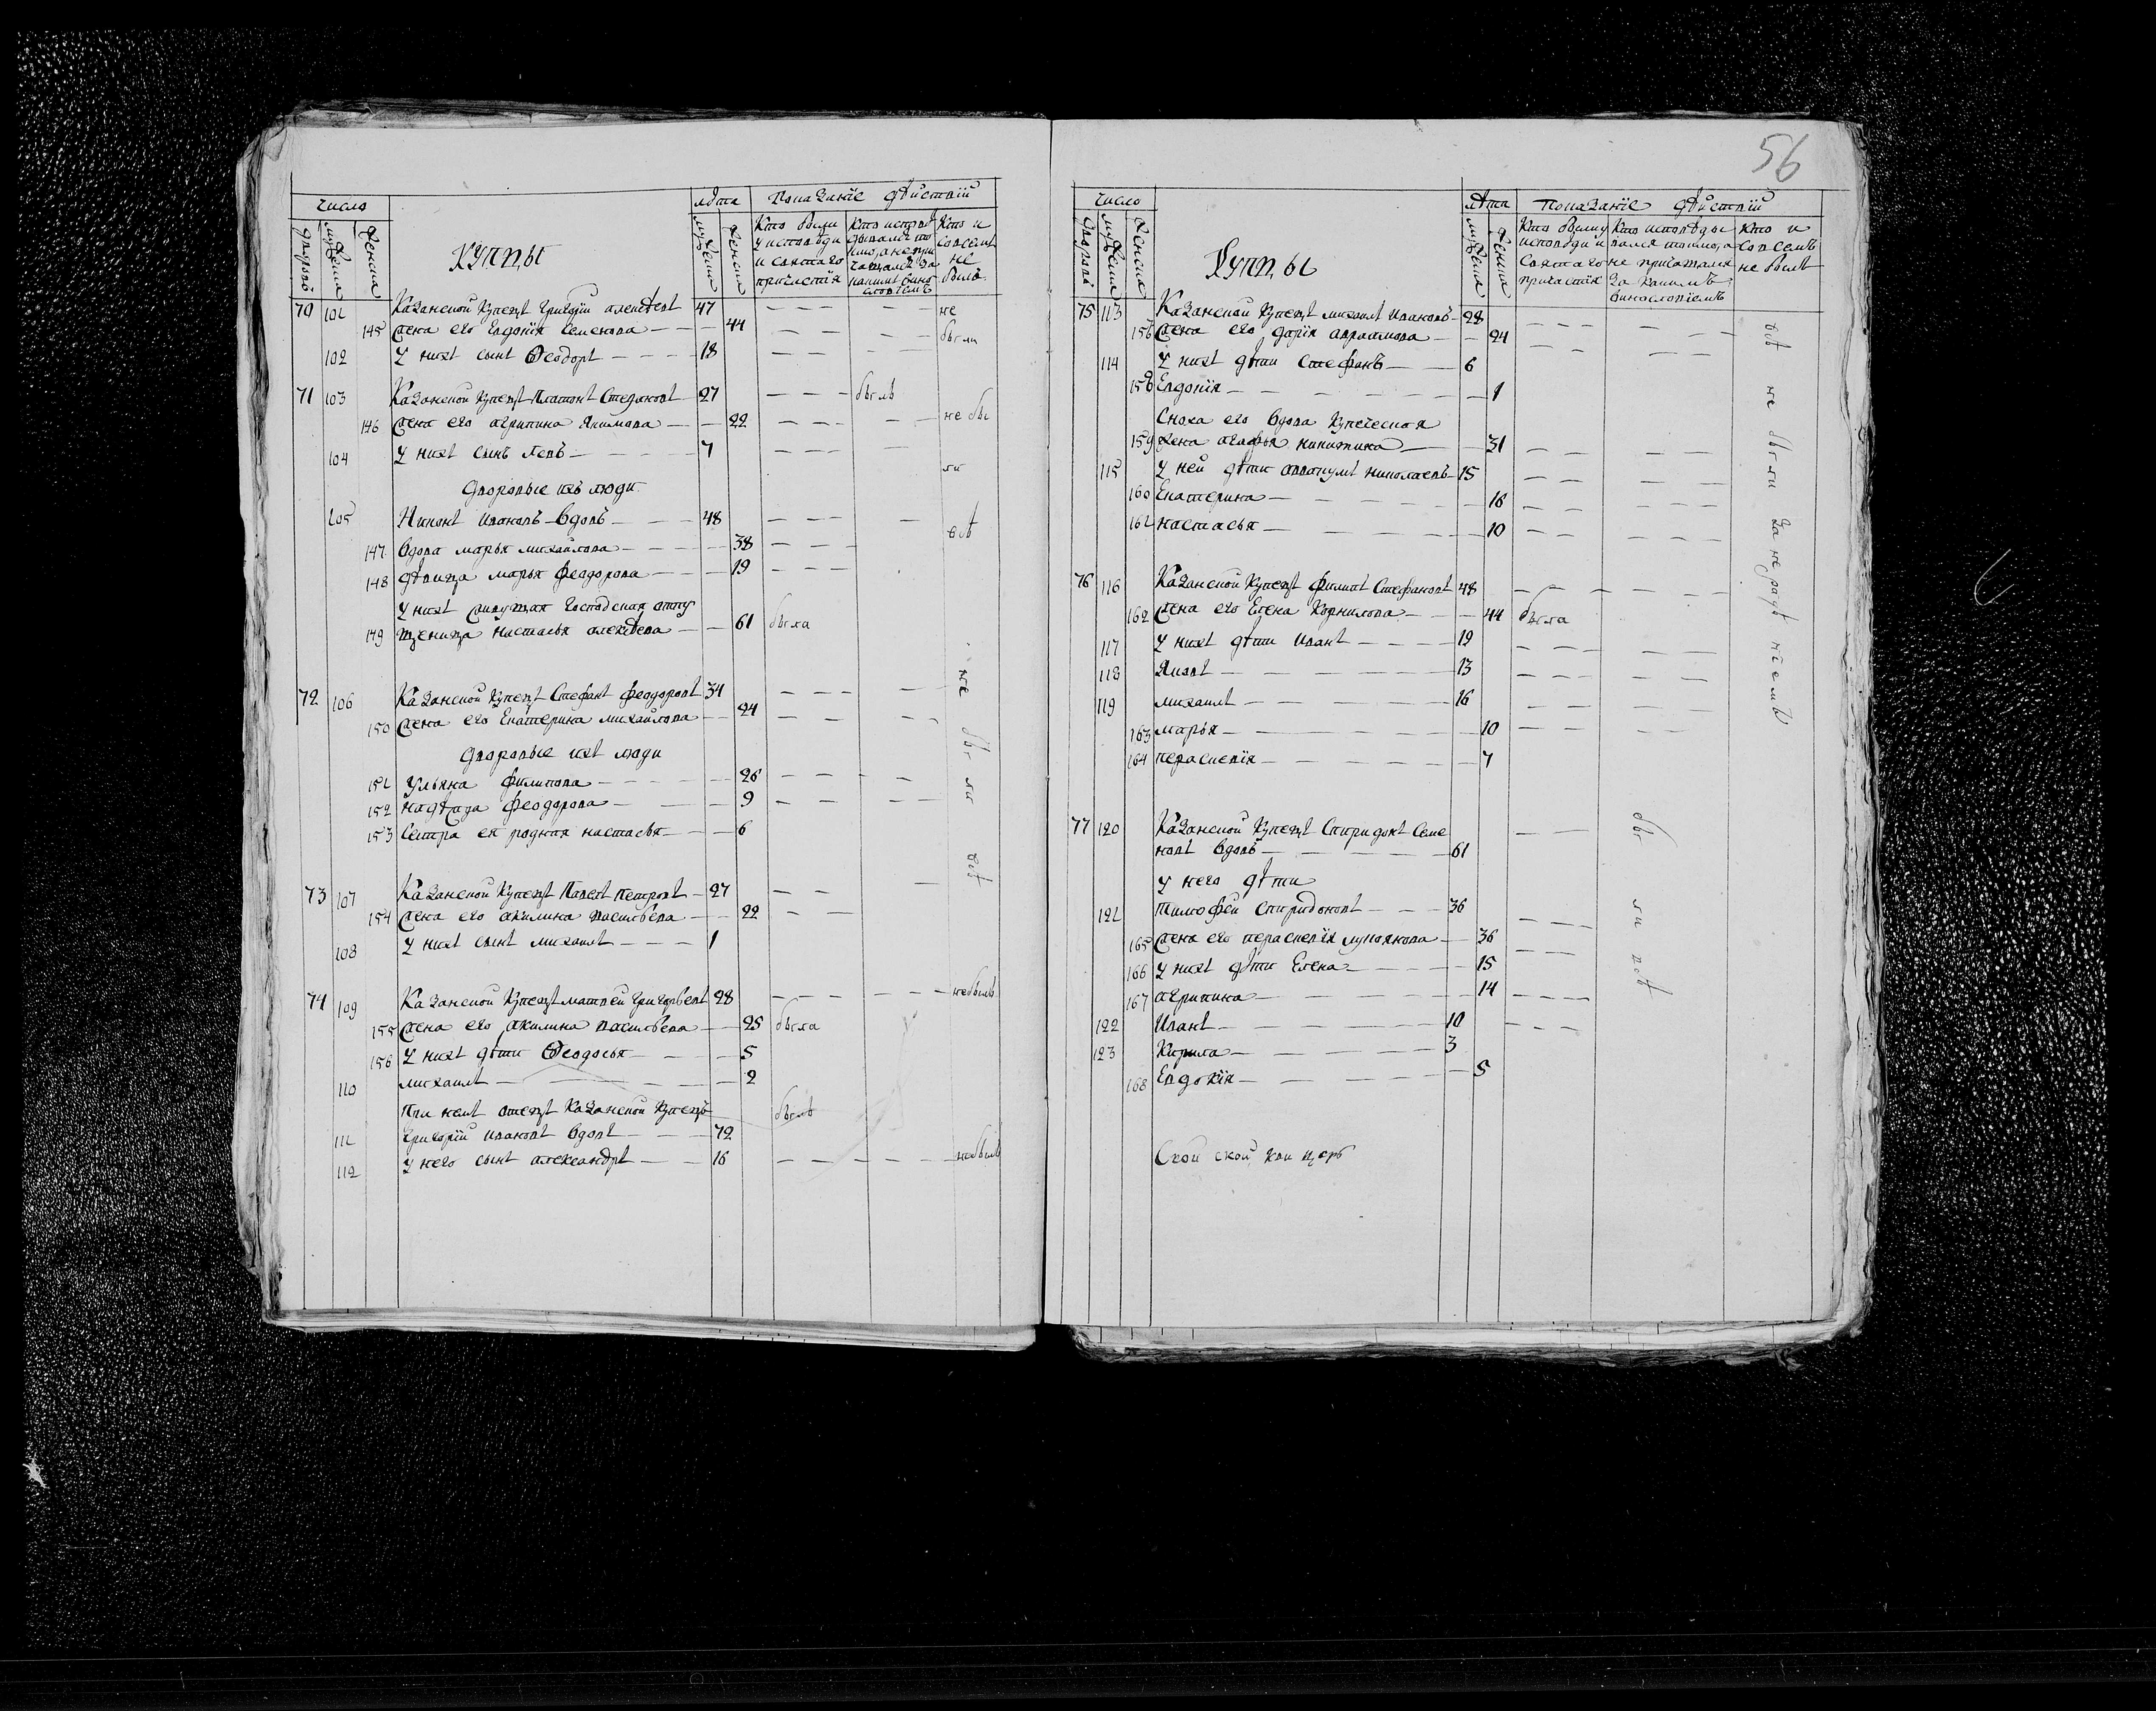 число
лѣта Показанїе дѣиствїи
дворовъ мужеска женска
купцы
мужеска женска
Кто были у исповѣди и святаго причастїя
Кто исповѣдывались токмо, а не причащались за каким винословїемъ
Кто и совсемъ не былъ
70 101 Казанской Купецъ Григорїи алексѣевъ 47 не
145 жена его Евдокїя Семенова 44 были
102 у нихъ сынъ Ѳеодоръ 18
71 103 Казанской Купецъ Платонъ Степановъ 27 былъ
146 жена его агрипина Якимова 22 не бы
104 у нихъ сынъ левъ 7 ли
дворовые ихъ люди
105 Никонъ ивановъ вдовъ 48 всѣ
147 вдова марья михаилова 38
148 дѣвица марья феодорова 19
у нихъ живущая господская отпу
149 щеница настасья алексѣева 61 была
72 106 Казанской Купецъ Стефанъ феодоровъ 34 не
150 жена его Екатерина михаилова 24
дворовые ихъ люди бы
151 ульяна филипова 26 ли
152 надѣжда феодорова 9
153 Сестра ея родная настасья 6
всѣ
73 107 Казанской Купецъ Павелъ Петровъ 27
154 жена его акилина васильева 22
108 у нихъ сынъ михаилъ 1
74 109 Казанской Купецъ матвеи григорьевъ 28 небылъ
155 жена его акилина васильева 25 была
156 у нихъ дѣти Ѳеодосья 5
110 михаилъ 2
При немъ отецъ Казанской Купецъ былъ
111 григорїи ивановъ вдовъ 72
112 у него сынъ александръ 16 небылъ
56
число
лѣта показанїе дѣиствїи
дворовъ мужеска женска
Купцы
мужеска женска
Кто были у исповѣди и святаго причастїя
Кто исповѣдывался токмо, а не причащался за какимъ винословїемъ
Кто и совсемъ не былъ
75 113 Казанской Купецъ михаилъ ивановъ 28
156 жена его дарїя аврамова 24
114 у нихъ дѣти стефанъ 6
158 Евдокїя 1
Сноха его вдова купеческая
159 жена агафья никитина 31
115 у ней дѣти аввакумъ николаевъ 15
160 Екатерина 16
161 настасья 10
всѣ не были за нерадѣнїемъ
76 116 Казанской Купецъ филипъ Стефановъ 48
162 жена его Елена Корнилова 44 была
117 у нихъ дѣти иванъ 19
118 Яковъ 13
119 михаилъ 16
163 марья 10
164 пераскевїя 7
77 120 Казанской Купецъ Спиридонъ Семе
новъ вдовъ 61
у него дѣти
121 тимофеи спиридоновъ 36
165 жена его пераскевїя лукоянова 36
166 у нихъ дѣти Елена 15
167 агрипина 14
122 Иванъ 10
123 Кирила 3
168 Евдокїя 5
были всѣ